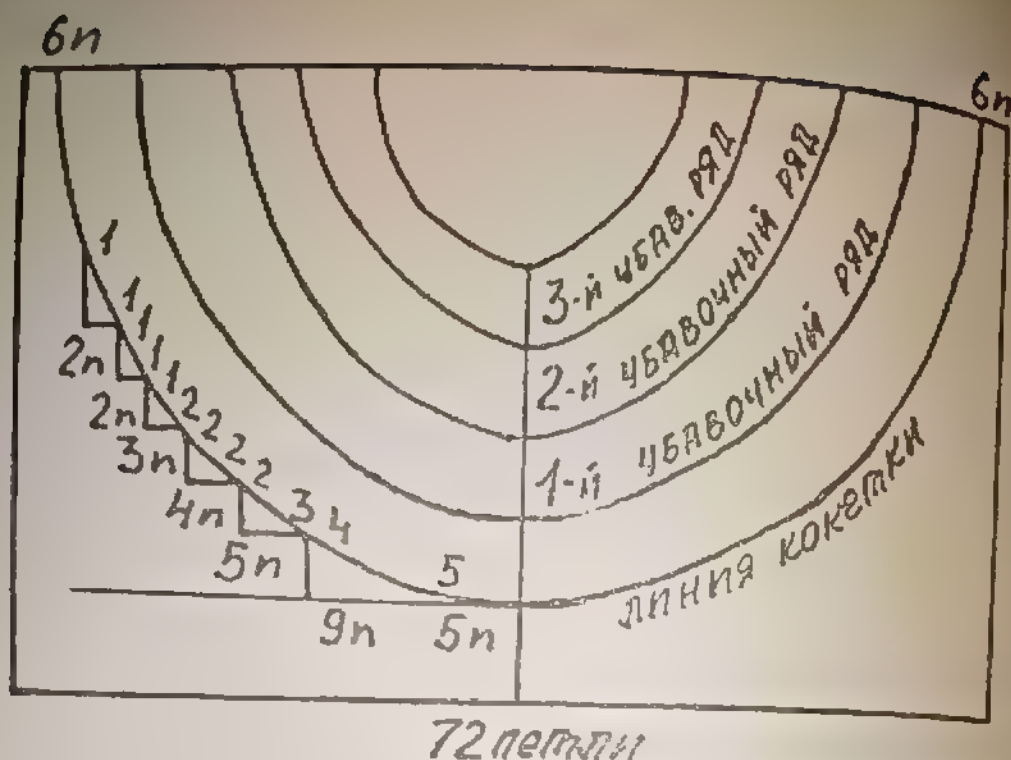 6п
6п
3-й убав. ряд
2-й убавочный ряд
1-й убавочный ряд
линия кокетки
1
1
1
1
1
2
2
2
2
3
4
5
2п
2п
3п
4п
5п
9п
5п
72 петли